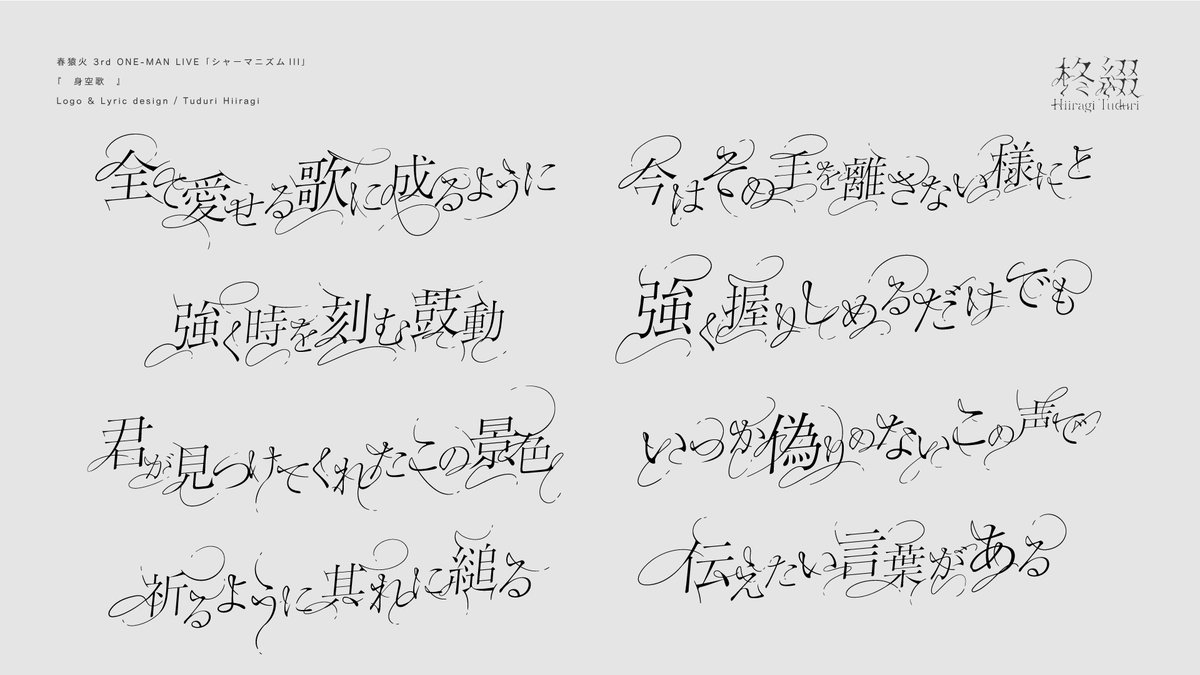 春猿火 3rd ONE-MAN LIVE「シャーマニズムIII」
『　身空歌　』
Logo & Lyric design / Tuduri Hiiragi
柊綴
Hiiragi Tuduri
全て愛せる歌に成るように
強く時を刻む鼓動
君が見つけてくれたこの景色
祈るように其れに縋る
今はその手を離さない様にと
強く握りしめるだけでも
いつか偽りのないこの声で
伝えたい言葉がある